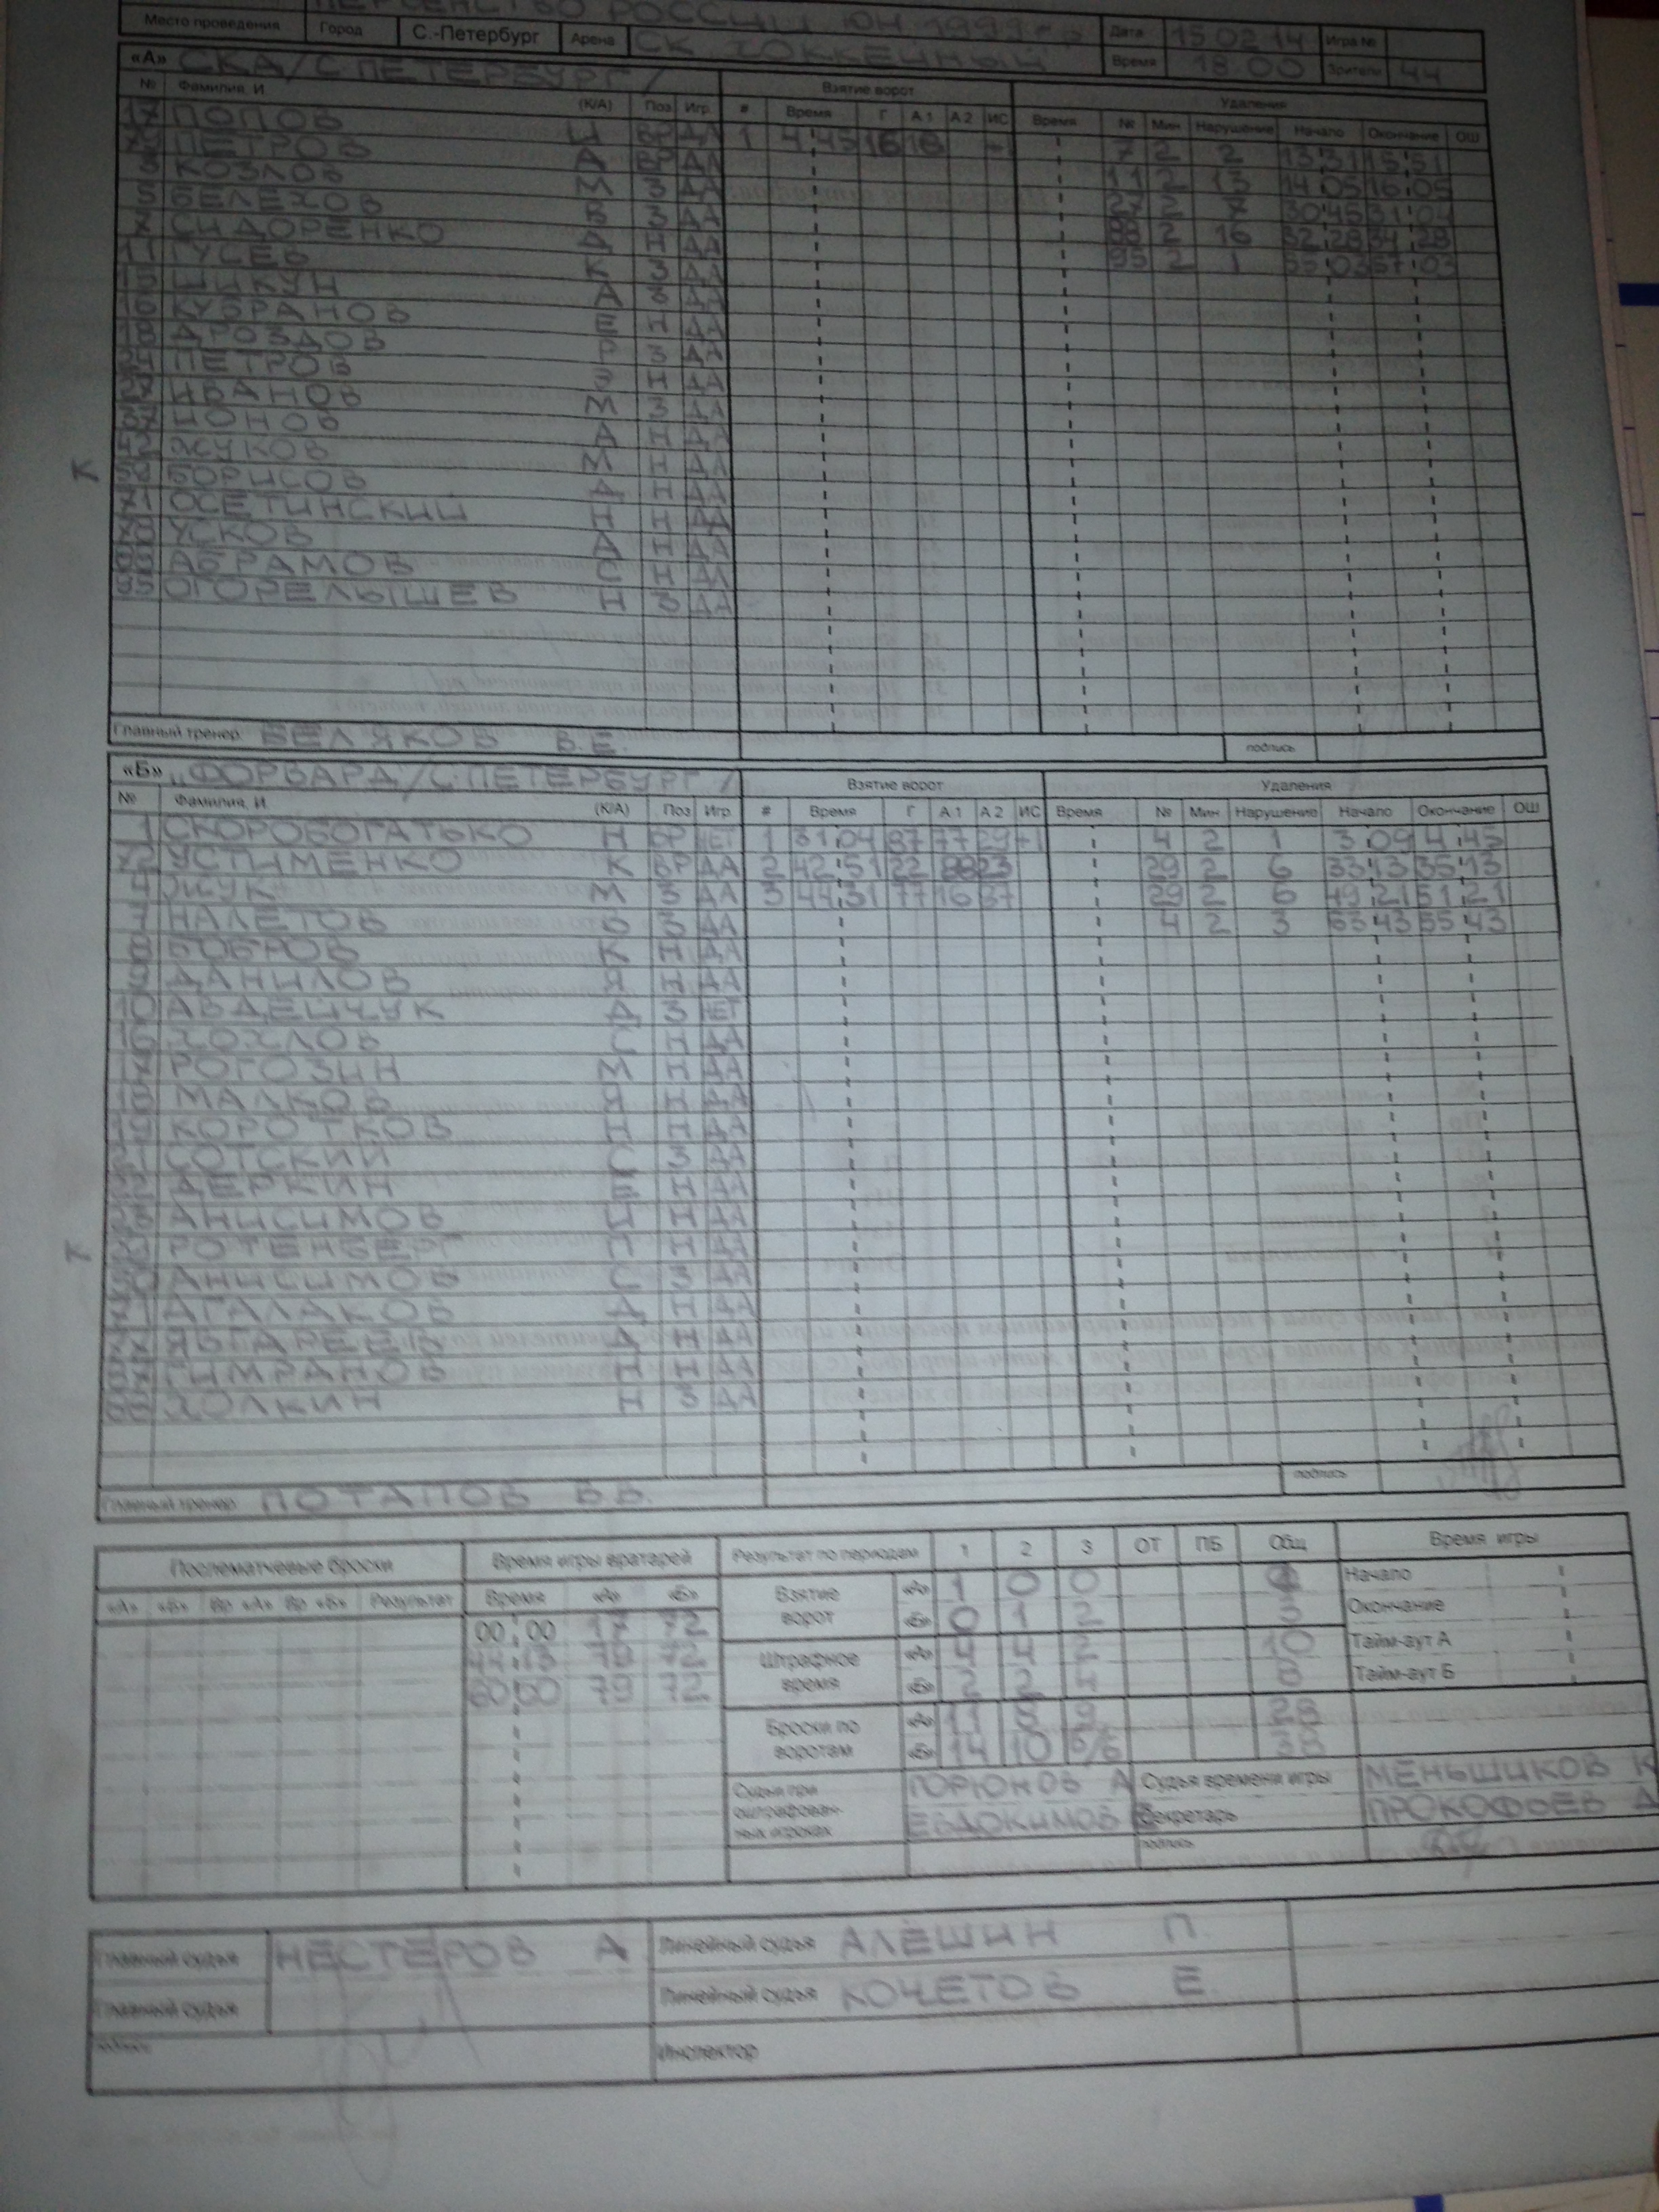 ПЕРВЕНСТВО РОССИИ ЮН 1999 г.р.
Место проведения Город С.-Петербург Арена СК ХОККЕЙНЫЙ Дата 15 02 14 Игра №
Время 18.00 Зрители 44
«А» СКА /С ПЕТЕРБУРГ/ Взятие ворот Удаления
№ Фамилия, И. (К/А) Поз Игр # Время Г А1 А2 ИС Время № Мин Нарушение Начало Окончание ОШ
17 ПОПОВ И ВР ДА 1 4 45 16 18 7 2 2 13 31 15 31
79 ПЕТРОВ А ВР ДА 11 2 13 14 05 16 05
3 КОЗЛОВ М З ДА 27 2 7 30 45 31 04
5 БЕЛЕХОВ В З ДА 88 2 16 32 28 34 28
7 СИДОРЕНКО Д Н ДА 95 2 1 55 03 57 03
11 ГУСЕВ К З ДА
15 ШИКУН А З ДА
16 КУБРАНОВ Е Н ДА
18 ДРОЗДОВ Р З ДА
24 ПЕТРОВ Э Н ДА
27 ИВАНОВ М З ДА
37 ИОНОВ А Н ДА
42 ЖУКОВ М Н ДА
К БОРИСОВ Д Н ДА
71 ОСЕТИНСКИЙ Н Н ДА
78 УСКОВ А Н ДА
АБРАМОВ С Н ДА
95 ОГОРЕЛЫШЕВ Н З ДА
Главный тренер БЕЛЯКОВ В.Е. подпись
«Б» „ФОРВАРД /С-ПЕТЕРБУРГ/ Взятие ворот Удаления
№ Фамилия, И. (К/А) Поз Игр # Время Г А1 А2 ИС Время № Мин Нарушение Начало Окончание ОШ
1 СКОРОБОГАТЬКО Н ВР НЕТ 1 31 04 87 77 29 +1 4 2 1 3 09 4 45
72 УСТИМЕНКО К ВР ДА 2 42 51 22 88 23 29 2 6 33 13 35 13
4 ЖУК М З ДА 3 44 31 77 16 37 29 2 6 49 21 51 21
7 НАЛЕТОВ З ДА 4 2 3 53 43 55 43
8 БОБРОВ К Н ДА
9 ДАНИЛОВ Я Н ДА
10 АВДЕЙЧУК Д З НЕТ
16 ХОХЛОВ С Н ДА
17 РОГОЗИН М Н ДА
18 МАЛКОВ Я Н ДА
19 КОРОТКОВ Н Н ДА
21 СОТСКИЙ С З ДА
22 ДЕРКИН Е Н ДА
23 АНИСИМОВ И Н ДА
К 29 РОТЕНБЕРГ П Н ДА
50 АНИСИМОВ С З ДА
71 АГАЛАКОВ Д Н ДА
77 ЯВГАРЕЕВ Д Н ДА
87 ГИМРАНОВ Н Н ДА
88 ХОЛКИН Н З ДА
Главный тренер ПОТАПОВ В.В. подпись
Послематчевые броски Время игры вратарей Результат по периодам 1 2 3 ОТ ПБ Общ Время игры
«А» «Б» Вр «А» Вр «Б» Результат Время «А» «Б» Взятие ворот «А» 1 0 0 Начало
00 00 17 72 «Б» 0 1 2 3 Окончание
79 72 Штрафное время «А» 4 4 2 10 Тайм-аут А
60 00 79 72 «Б» 2 2 4 8 Тайм-аут Б
Броски по воротам «А» 11 8 9 28
«Б» 14 10 38
Судьи при оштрафован-ных игроках ГОРЮНОВ А Судья времени игры МЕНЬШИКОВ К
ЕВДОКИМОВ Секретарь ПРОКОФЬЕВ А
подпись
Главный судья НЕСТЕРОВ А Линейный судья АЛЁШИН П.
Главный судья Линейный судья КОЧЕТОВ Е.
подпись Инспектор